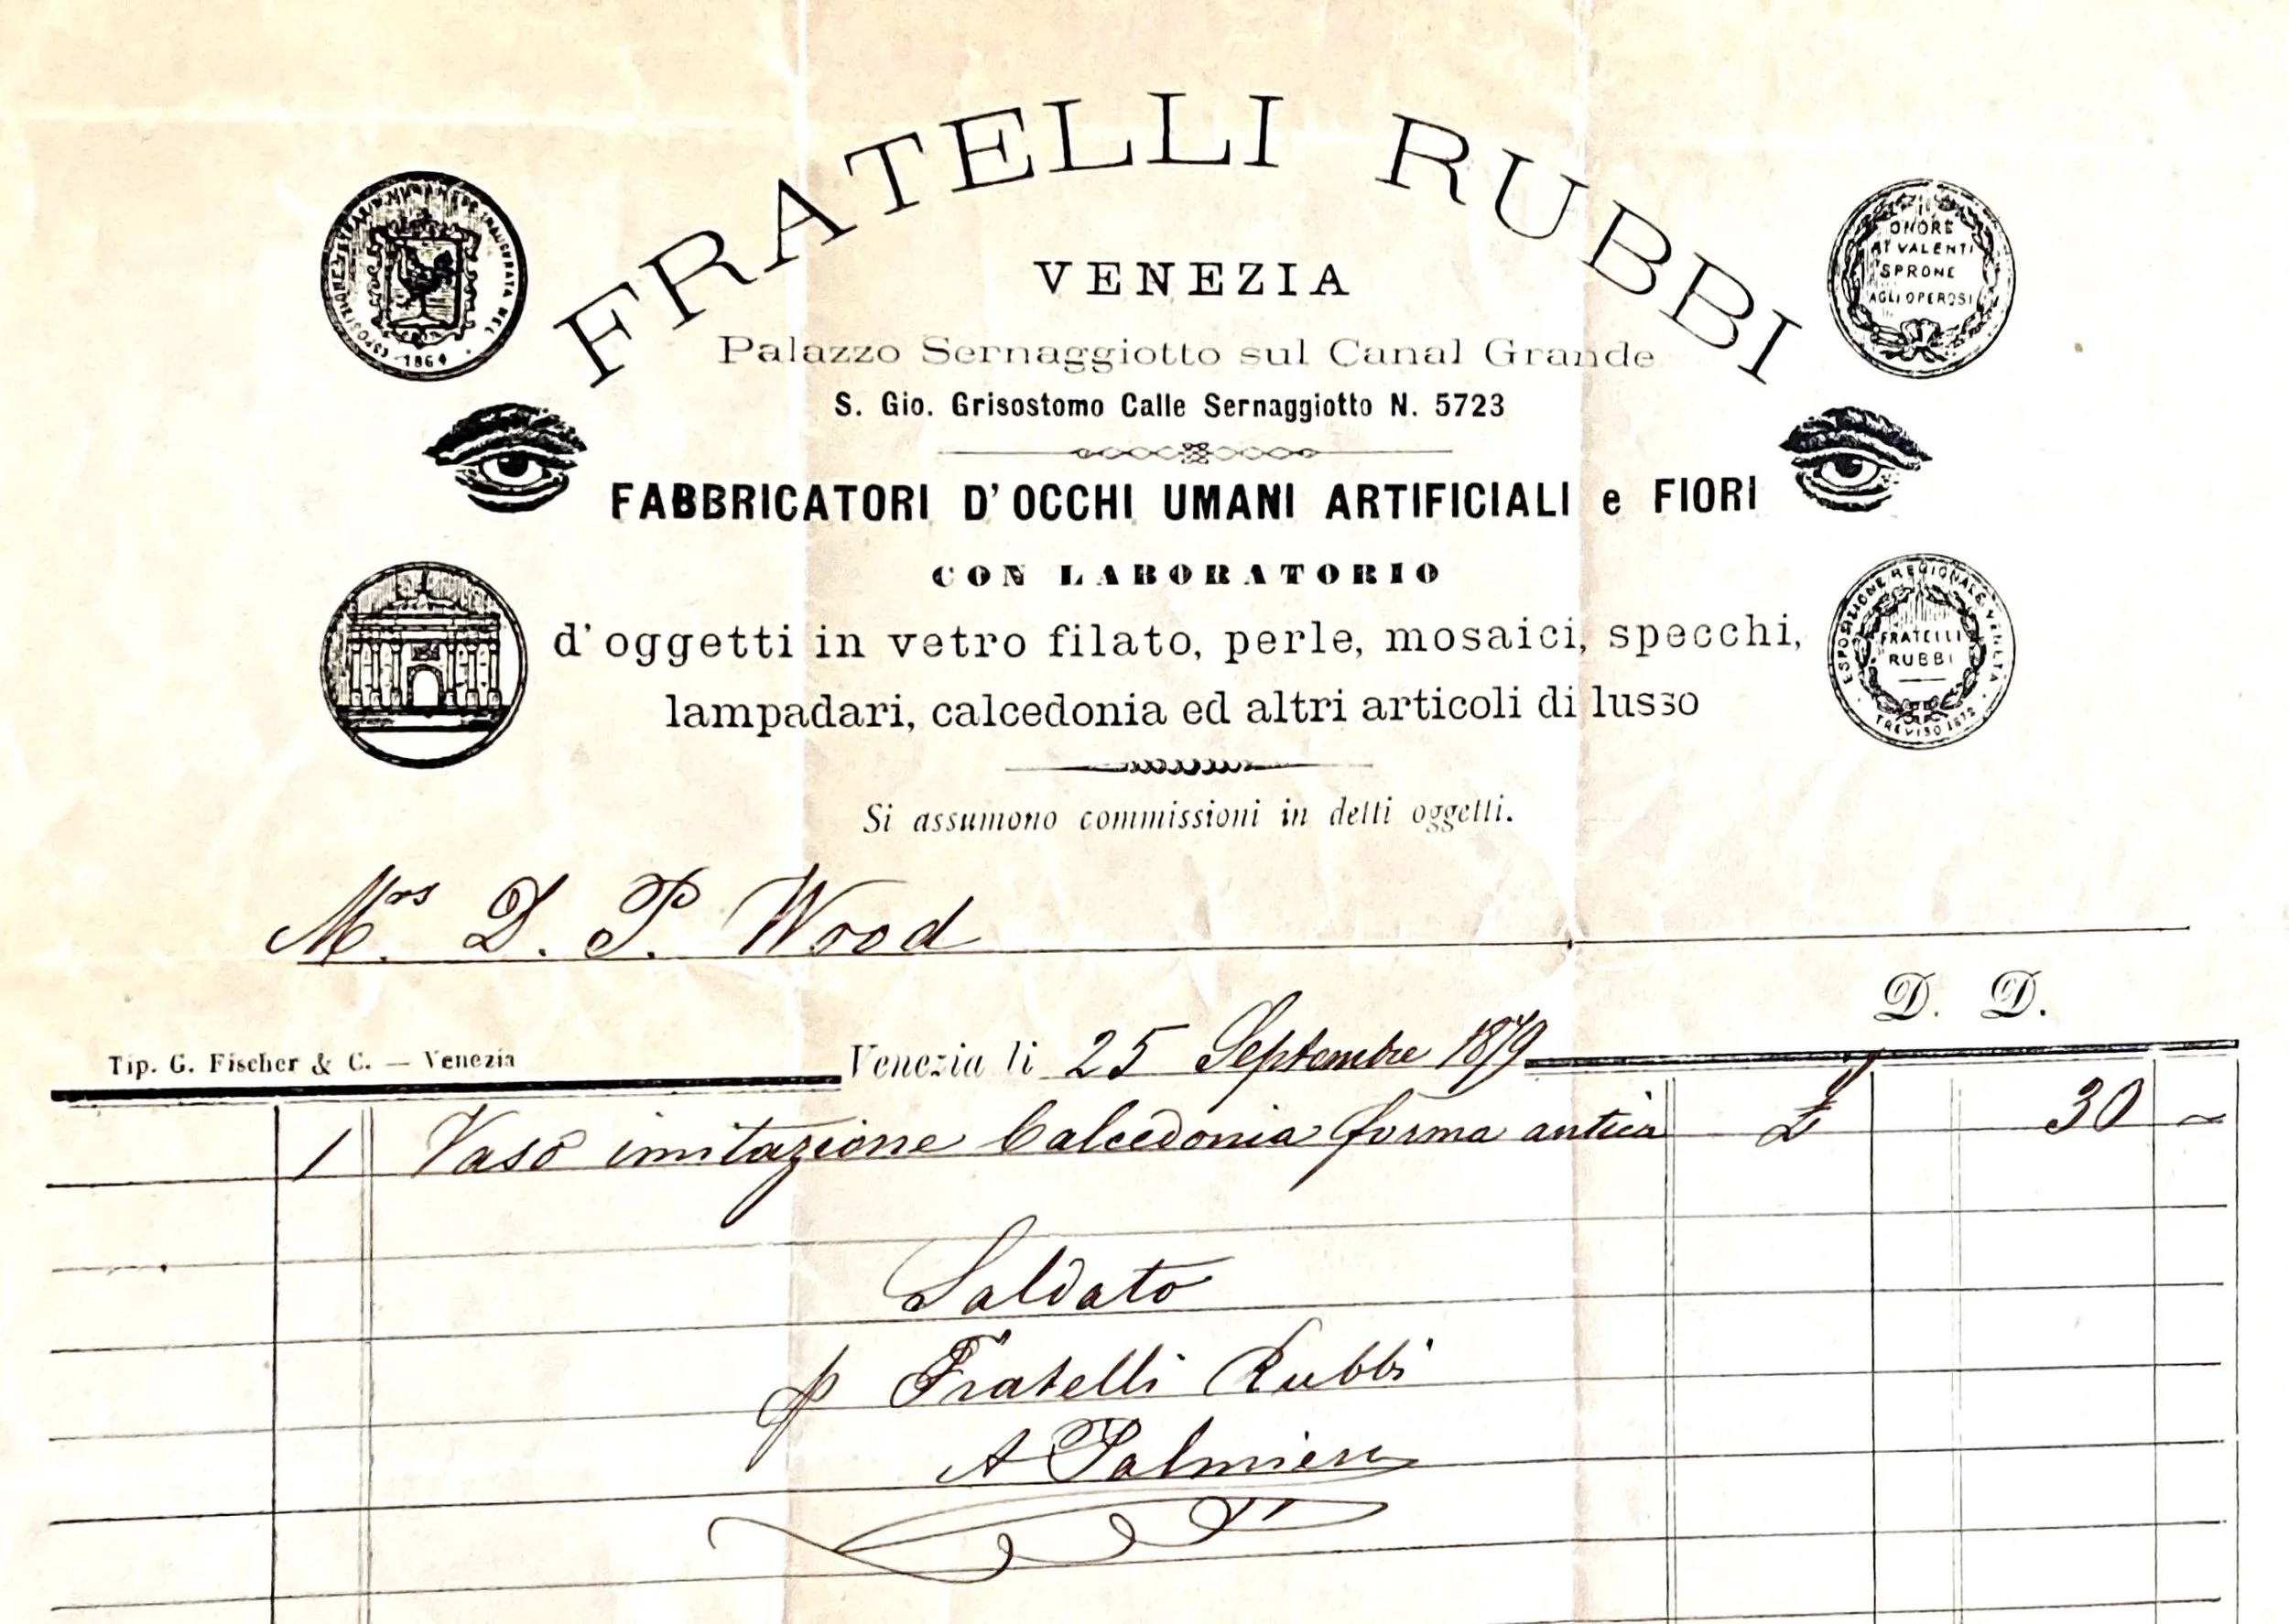 FRATELLI RUBBI
VENEZIA
Palazzo Sernaggiotto sul Canal Grande
S. Gio. Grisostomo Calle Sernaggiotto N. 5723
FABBRICATORI D'OCCHI UMANI ARTIFICIALI e FIORI
CON LABORATORIO
d'oggetti in vetro filato, perle, mosaici, specchi,
lampadari, calcedonia ed altri articoli di lusso
Si assumono commissioni in detti oggetti.
INAUGURATA NEL
1864
ONORE
AI VALENTI
SPRONE
AGLI OPEROSI
ESPOSIZIONE REGIONALE VENETA
FRATELLI
RUBBI
TREVISO 1872
Mrs. D. P. Wood
D. D.
Tip. G. Fischer & C. — Venezia
Venezia li 25 Septembre 1879
1 Vaso imitazione Calcedonia forma antica £ 30 —
Saldato
p Fratelli Rubbi
A Palmieri